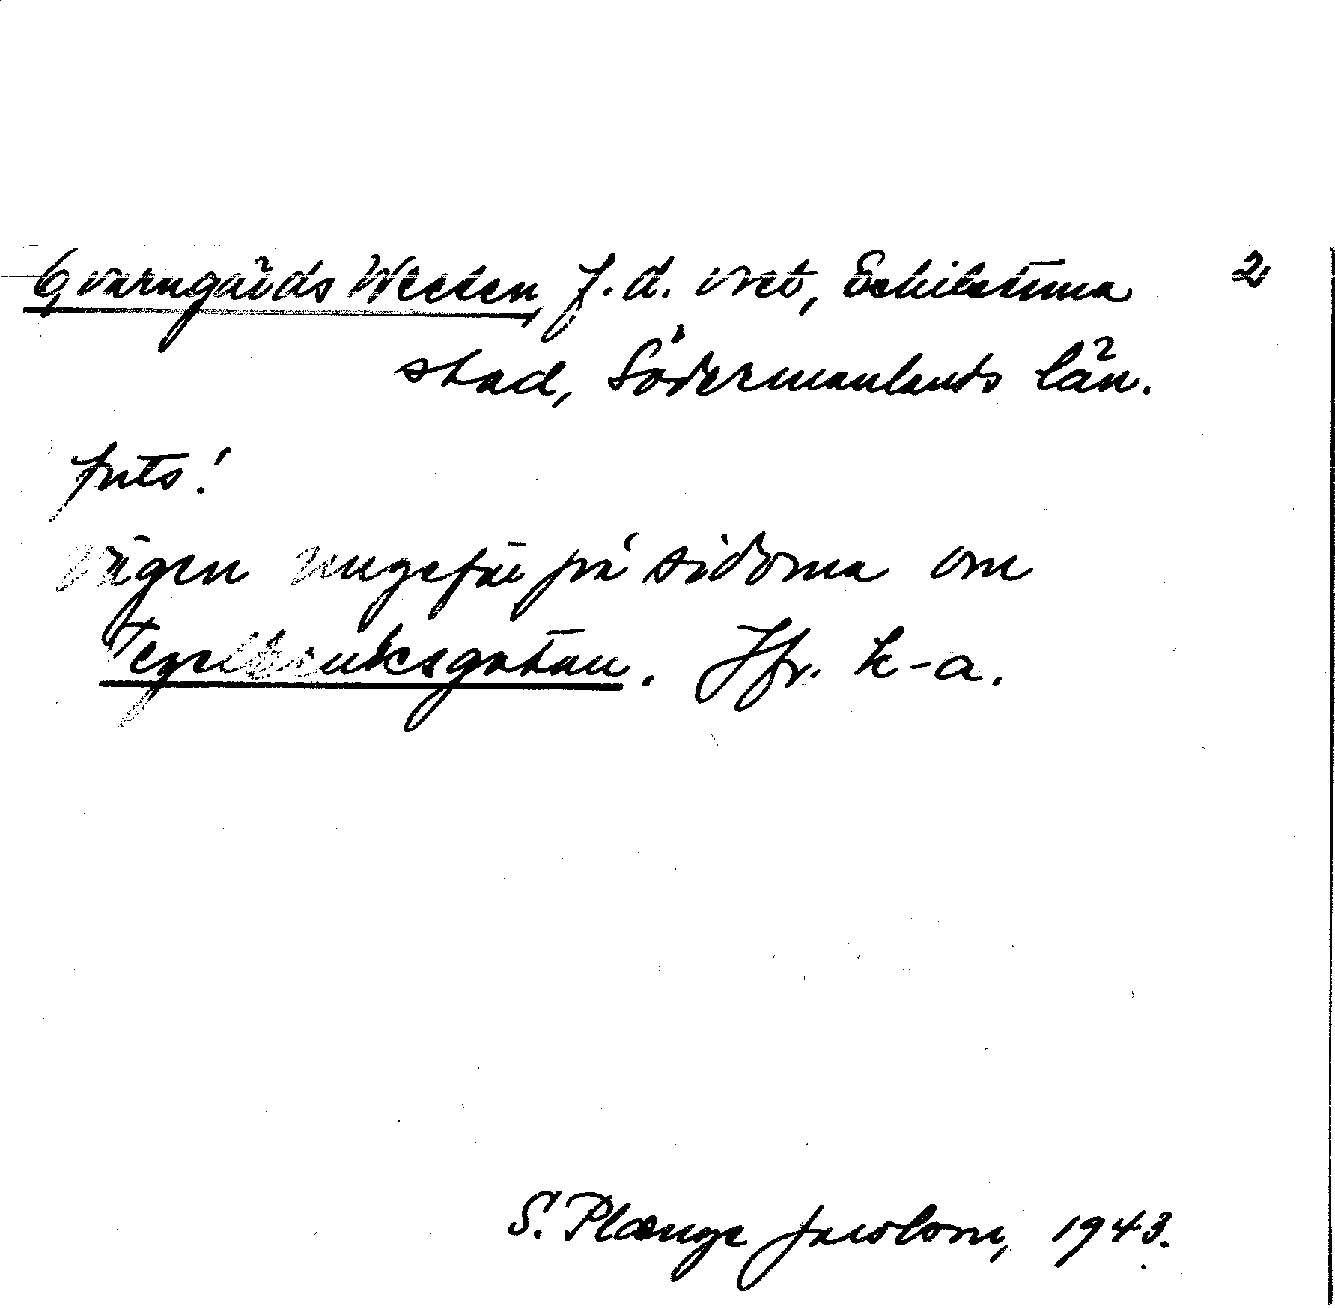 Qvarngärds Wreten, f.d. vret, Eskilstuna 2
stad, Södermanlands län.
forts!
vägen ungefär på sidorna om
Tegelbruksgatan. Jfr. k-a.
S. Plænge Jacobson, 1943.